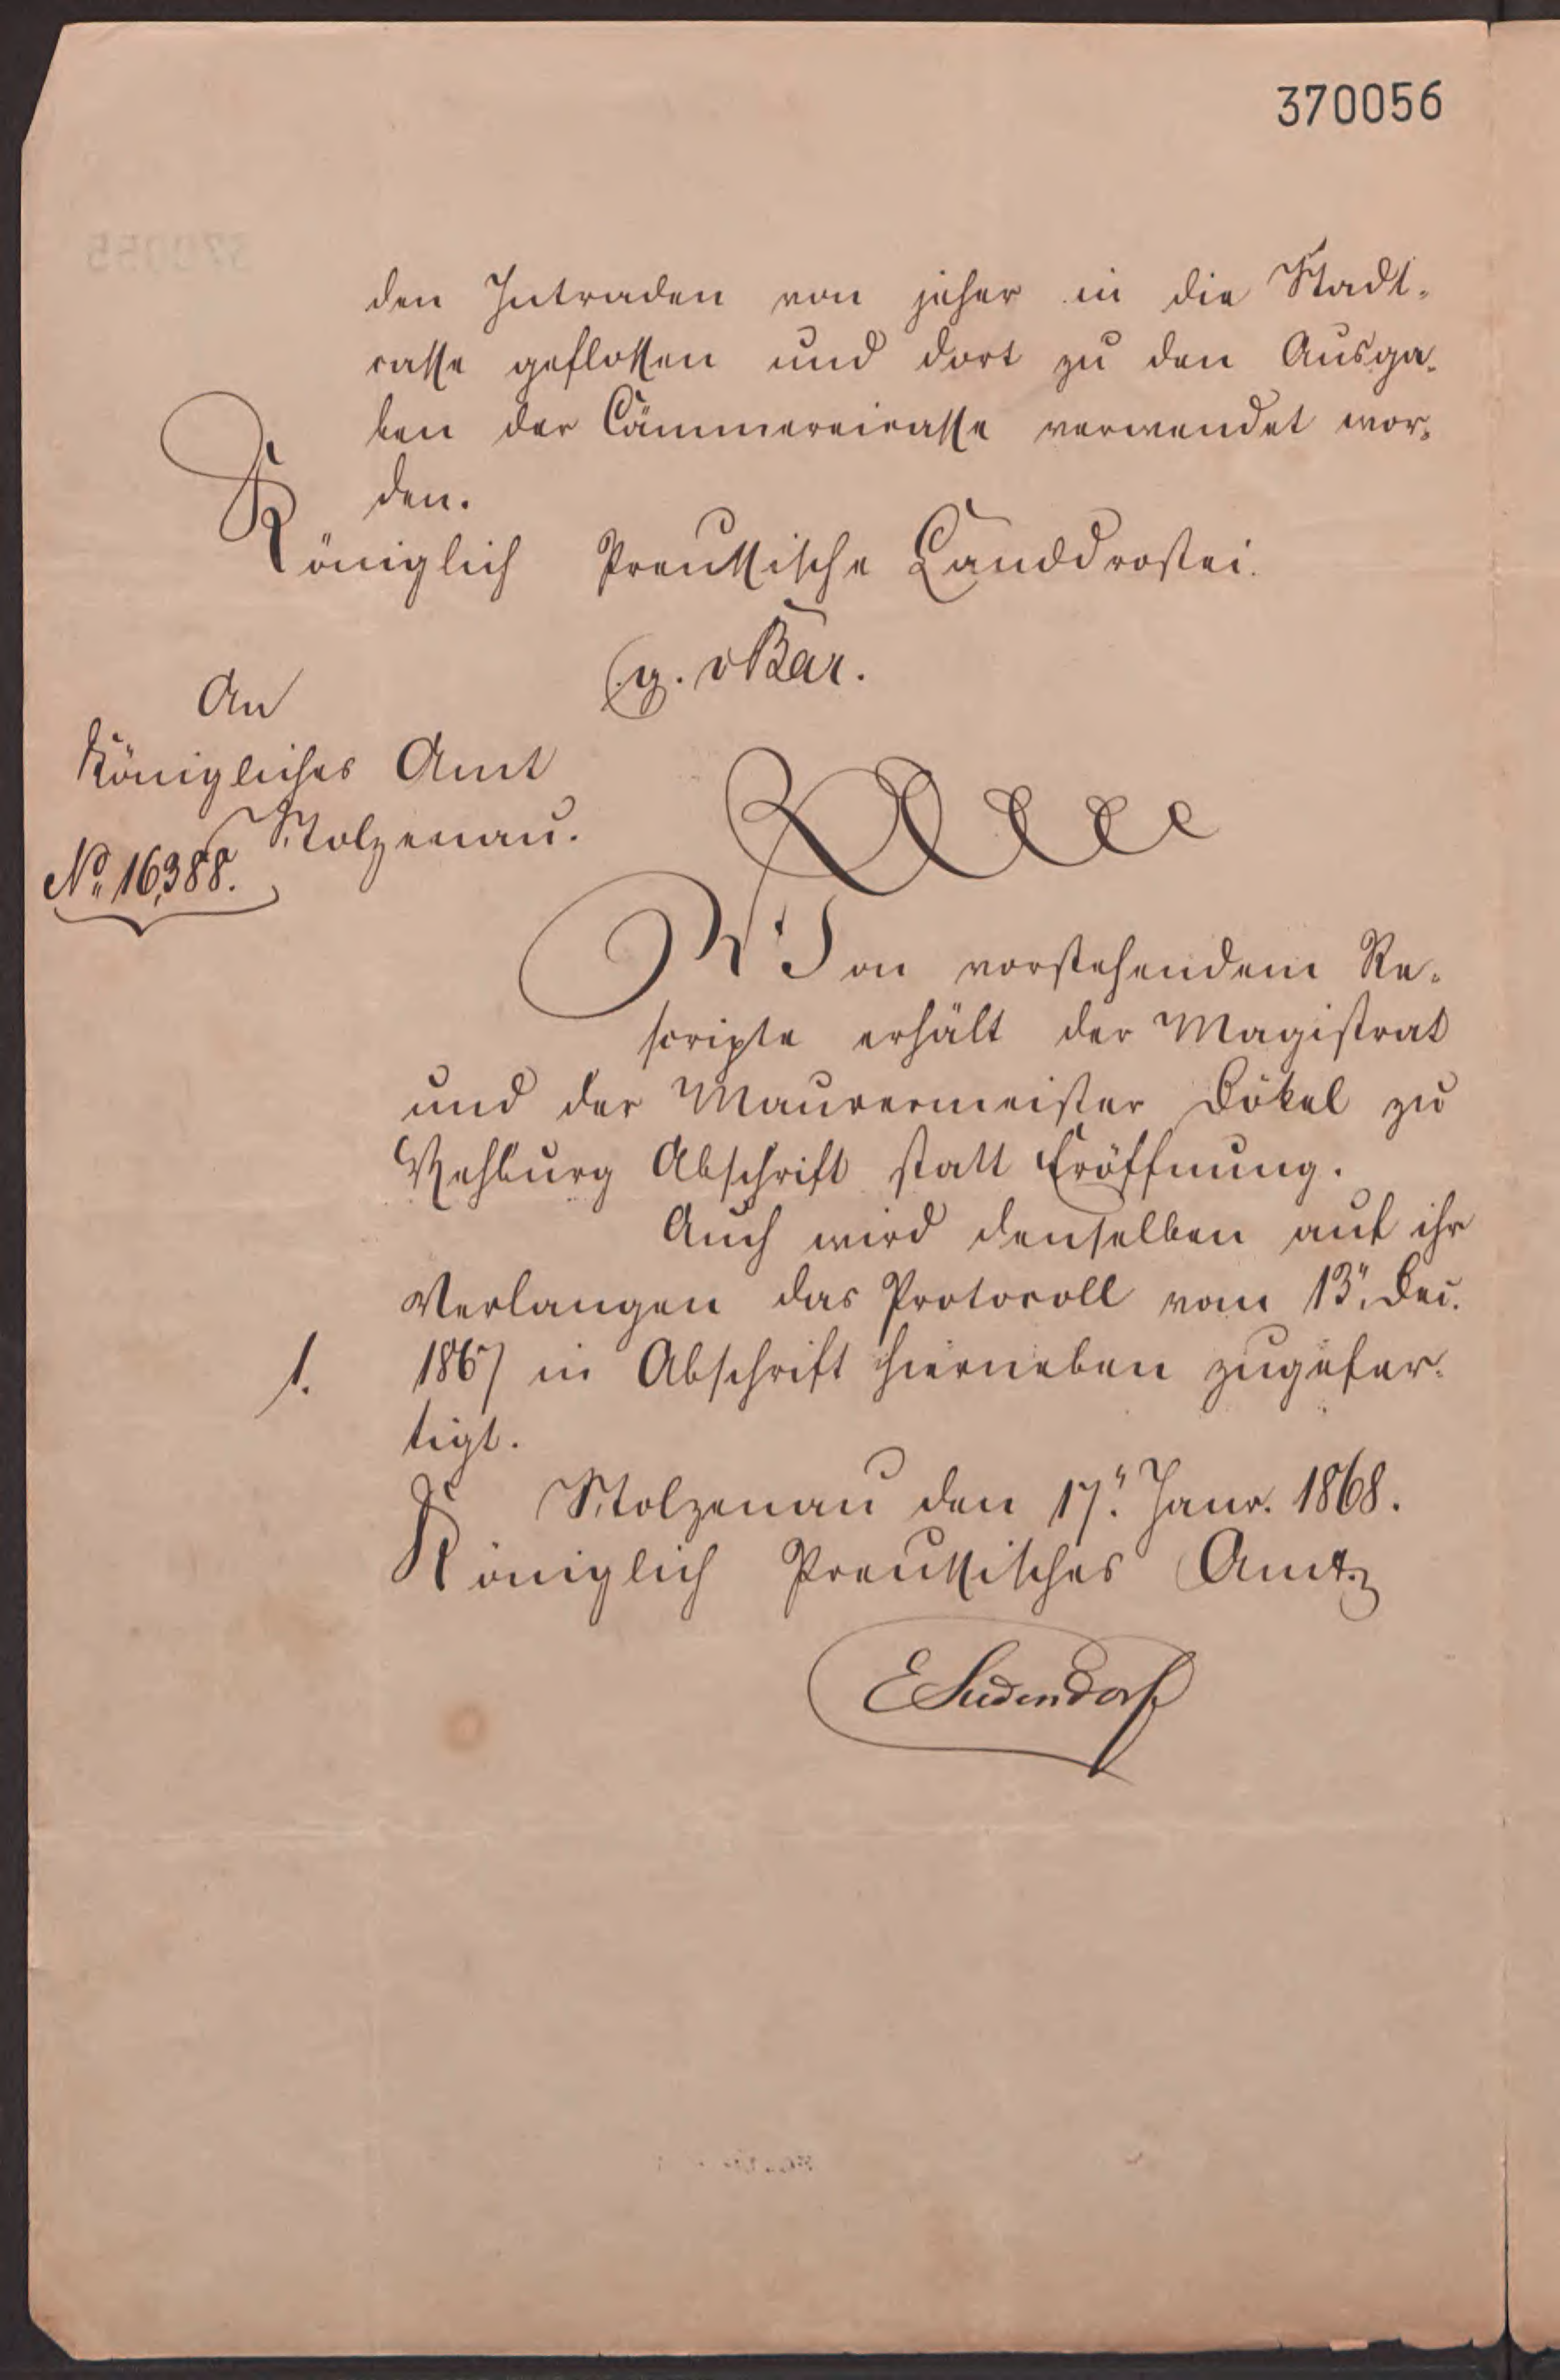 370056
den Intraden von jeher in die Stadt-
casse geflossen und dort zu den Ausga-
ben der Cämmereicasse verwendet wor-
den.
Königlich Preussische Landdrostei.
(g. v Bar.
An
Königliches Amt
Stolzenau.
No. 16,388.
Von vorstehendem Re-
scripte erhält der Magistrat
und der Maurermeister Dökel zu
Rehburg Abschrift statt Eröffnung.
Auch wird denselben auf ihr
Verlangen das Protocoll vom 13". Dec.
1. 1867 in Abschrift hierneben zugefer-
tigt.
Stolzenau den 17". Janr. 1868.
Königlich Preussisches Amt.
E Sudendorf